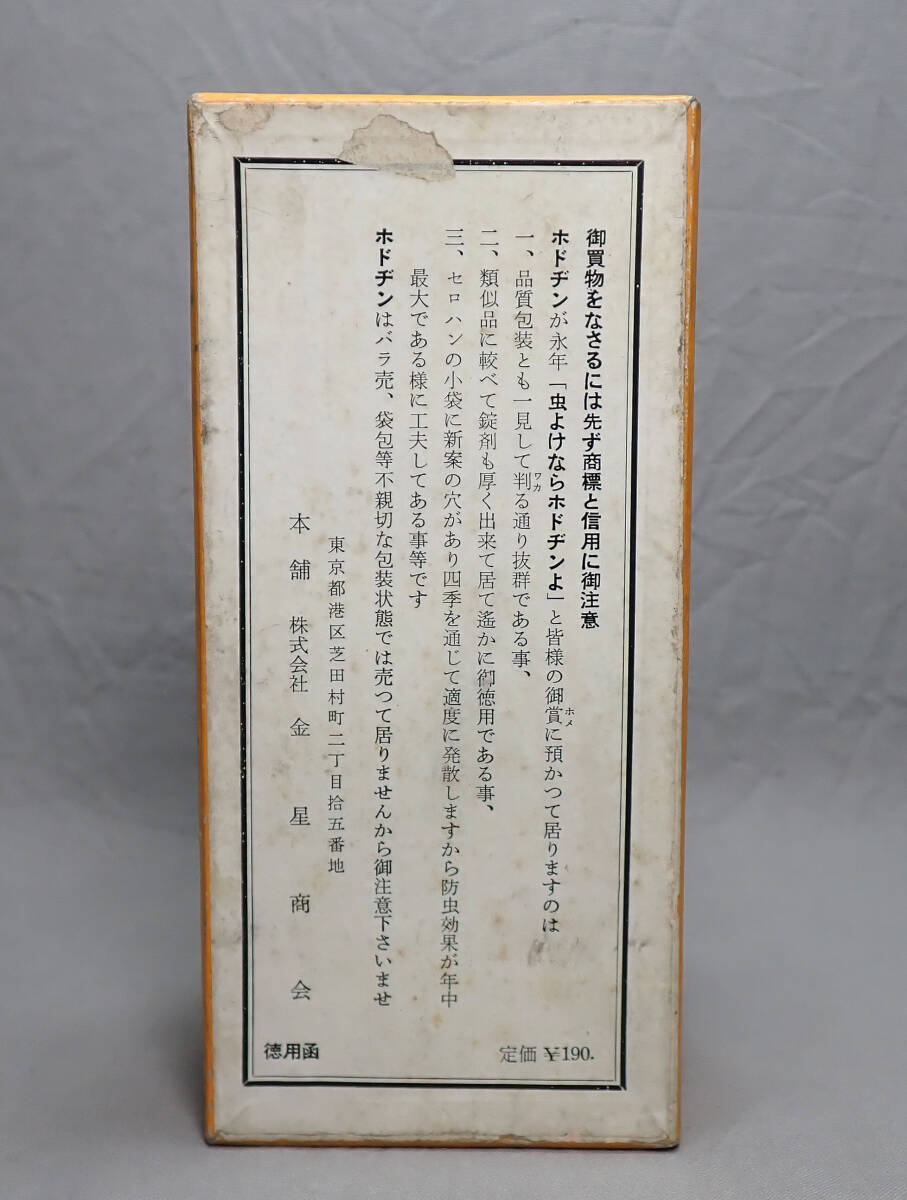 御買物をなさるには先ず商標と信用に御注意
ホドヂンが永年「虫よけならホドヂンよ」と皆様の御賞に預かつて居りますのは
ホメ
一、品質包装とも一見して判る通り抜群である事、
ワカ
二、類似品に較べて錠剤も厚く出来て居て遙かに御徳用である事、
三、セロハンの小袋に新案の穴があり四季を通じて適度に発散しますから防虫効果が年中
最大である様に工夫してある事等です
ホドヂンはバラ売、袋包等不親切な包装状態では売つて居りませんから御注意下さいませ
東京都港区芝田村町二丁目拾五番地
本舗 株式会社 金星商会
定価 ¥190.
徳用函